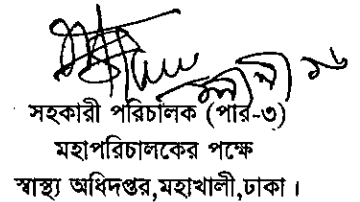 সহকারী পরিচালক (পার-৩)
মহাপরিচালকের পক্ষে
স্বাস্থ্য অধিদপ্তর,মহাখালী,ঢাকা ।